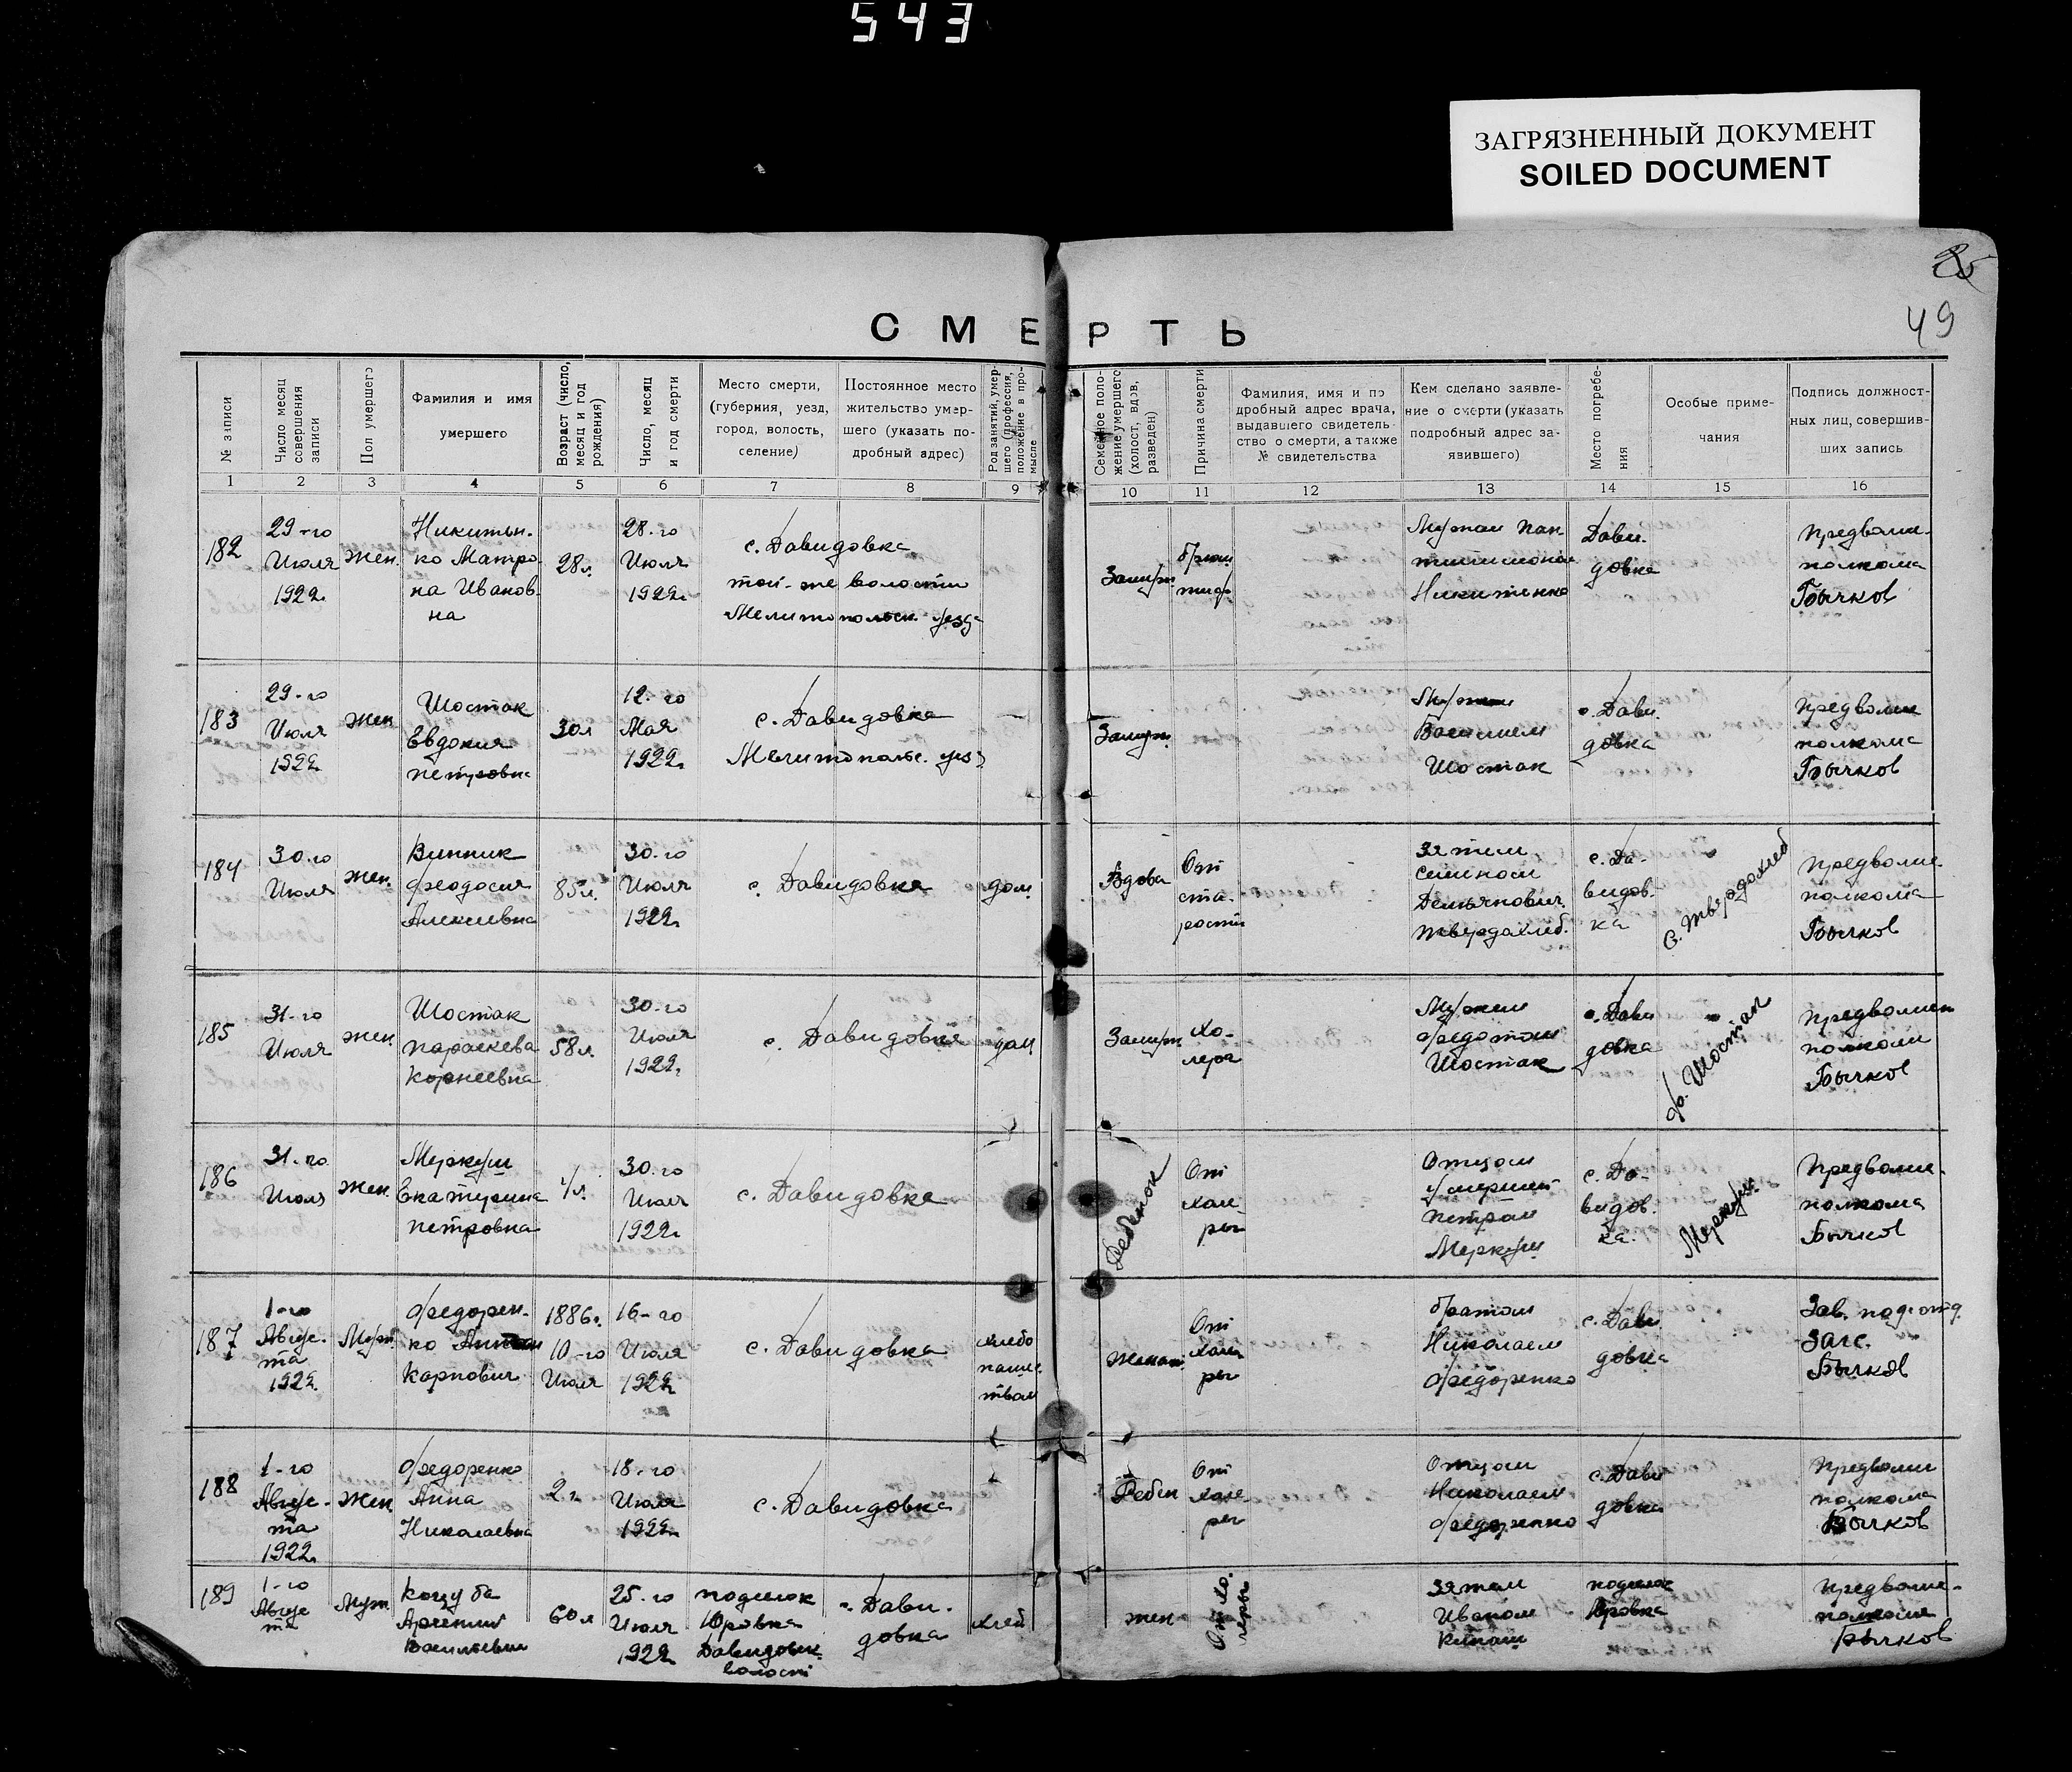 543
ЗАГРЯЗНЕННЫЙ ДОКУМЕНТ
SOILED DOCUMENT
49
СМЕРТЬ
№ записи
Число месяц совершения записи
Пол умершего
Фамилия и имя умершего
Возраст (число, месяц и год рождения)
Число, месяц и год смерти
Место смерти, (губерния, уезд, город, волость, селение)
Постоянное место жительство умершего (указать подробный адрес)
Род занятий, умершего (профессия, положение в промысле
Семейное положение умершего (холост, вдов, разведен)
Причина смерти
Фамилия, имя и подробный адрес врача, выдавшего свидетельство о смерти, а также № свидетельства
Кем сделано заявление о смерти (указать подробный адрес заявившего)
Место погребения
Особые примечания
Подпись должностных лиц, совершивших запись
1 2 3 4 5 6 7 8 9 10 11 12 13 14 15 16
182
29-го
Июля
1922
жен.
Никитен-
ко Матро
на Иванов
на
28 л.
28-го
Июля
1922
с. Давидовка
той-же волости
Мелитопольск. уезд
Замуж.
брюш
тиф
Мужем Пан-
тилимоном
Никитенко
Дави-
довка
Предволис-
полкома
Бычков
183
29-го
Июля
1922
жен
Шостак
Евдокия
Петровна
30 л
12-го
Мая
1922
с. Давидовка
Мелитопольс. уез
Замуж.
Мужем
Василием
Шостак
с. Дави
довка
Предволис
полкома
Бычков
184
30-го
Июля
жен.
Винник
Феодосия
Алексеевна
85 л.
30-го
Июля
1922
с. Давидовка
дом
Вдова
От
ста-
рости
Зятем
Семеном
Демьянович.
Твердохлеб.
с. Да-
видов-
ка
С. Твердохлеб
Предволис
полкома
Бычков
185
31-го
Июля
жен.
Шостак
Параскева
Корнеевна
58 л.
30-го
Июля
1922
с. Давидовка
дом
Замуж
Хо-
лера
Мужем
Федотом
Шостак
с. Дави
довка
Ф. Шостак
Предволис
полкома
Бычков
186
31-го
Июля
жен.
Меркуш
Екатерина
Петровна
30-го
Июля
1922
с. Давидовка
Ребенок
От
холе
ры
Отцом
умершей
Петром
Меркуш
с. Да-
видов-
ка.
Меркуш
Предволис-
полкома
Бычков
187
1-го
Авгус-
та
1922
Муж
Федорен-
ко
Карпович
1886 г.
10-го
Июля
16-го
Июля
1922
с. Давидовка
хлебо
пашес
твом
Женат
От
холе
ры
братом
Николаем
Федоренко
с. Дави
довка
Зав. подотд
Загс.
Бычков
188
1-го
Авгус-
та
1922
Жен
Федоренко
Анна
Николаевна
2 г.
18-го
Июля
1922
с. Давидовка
Ребен
От
холе
ры
Отцом
Николаем
Федоренко
с. Дави
довка
Предволис
полкома
Бычков
189
1-го
Авгус
та
Муж
Коцуба
Арсений
Васильевич
60 л
25-го
Июля
1922
поселок
Юровка
Давидовск.
волости
с. Дави-
довка
хлеб
жен
От хо-
леры
Зятем
Иваном
поселок
Юровка
Предволис-
полкома
Бычков